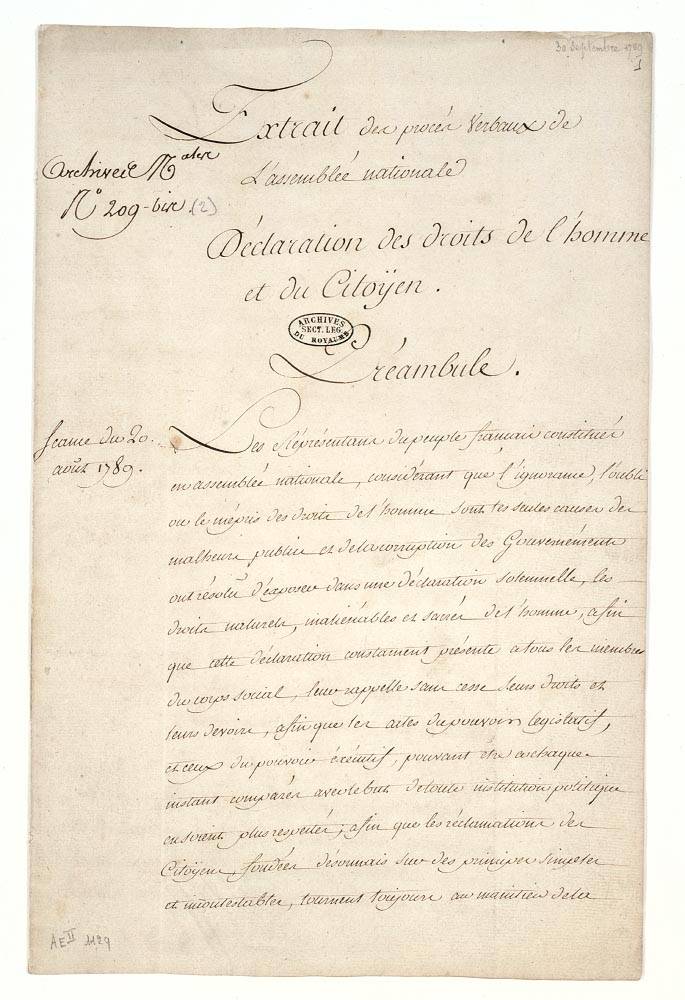 30 Septembre 1789
1
Extrait des procès Verbaux de
L'assemblée nationale
archives Nales
No 209-bis (2)
Déclaration des droits de l'homme
et du Citoÿen.
ARCHIVES
SECT. LEG.
DU ROYAUME
Préambule.
Séance du 20.
août 1789.
Les Réprésentans du peuple francais constitués
en assemblée nationale, considérant que l'ignorance, l'oubli
ou le mépris des droits de l'homme sont les seules causes des
malheurs publics et de la corruption des Gouvernéments
ont résolu d'exposer dans une déclaration solemnelle, les
droits naturels, inaliénables et sacrés de l'homme, afin
que cette déclaration constament présente a tous les membres
du corps social, leur rappelle sans cesse leurs droits et
leurs devoirs, afin que les actes du pouvoir legislatif,
et ceux du pouvoir éxécutif, pouvant etre a chaque
instant comparés avec le but de toute institution politique
en soient plus respectés; afin que les réclamations des
Citoyens, fondées désormais sur des principes simples
et incontestables, tournent toujours au maintien de la
AE II 1129